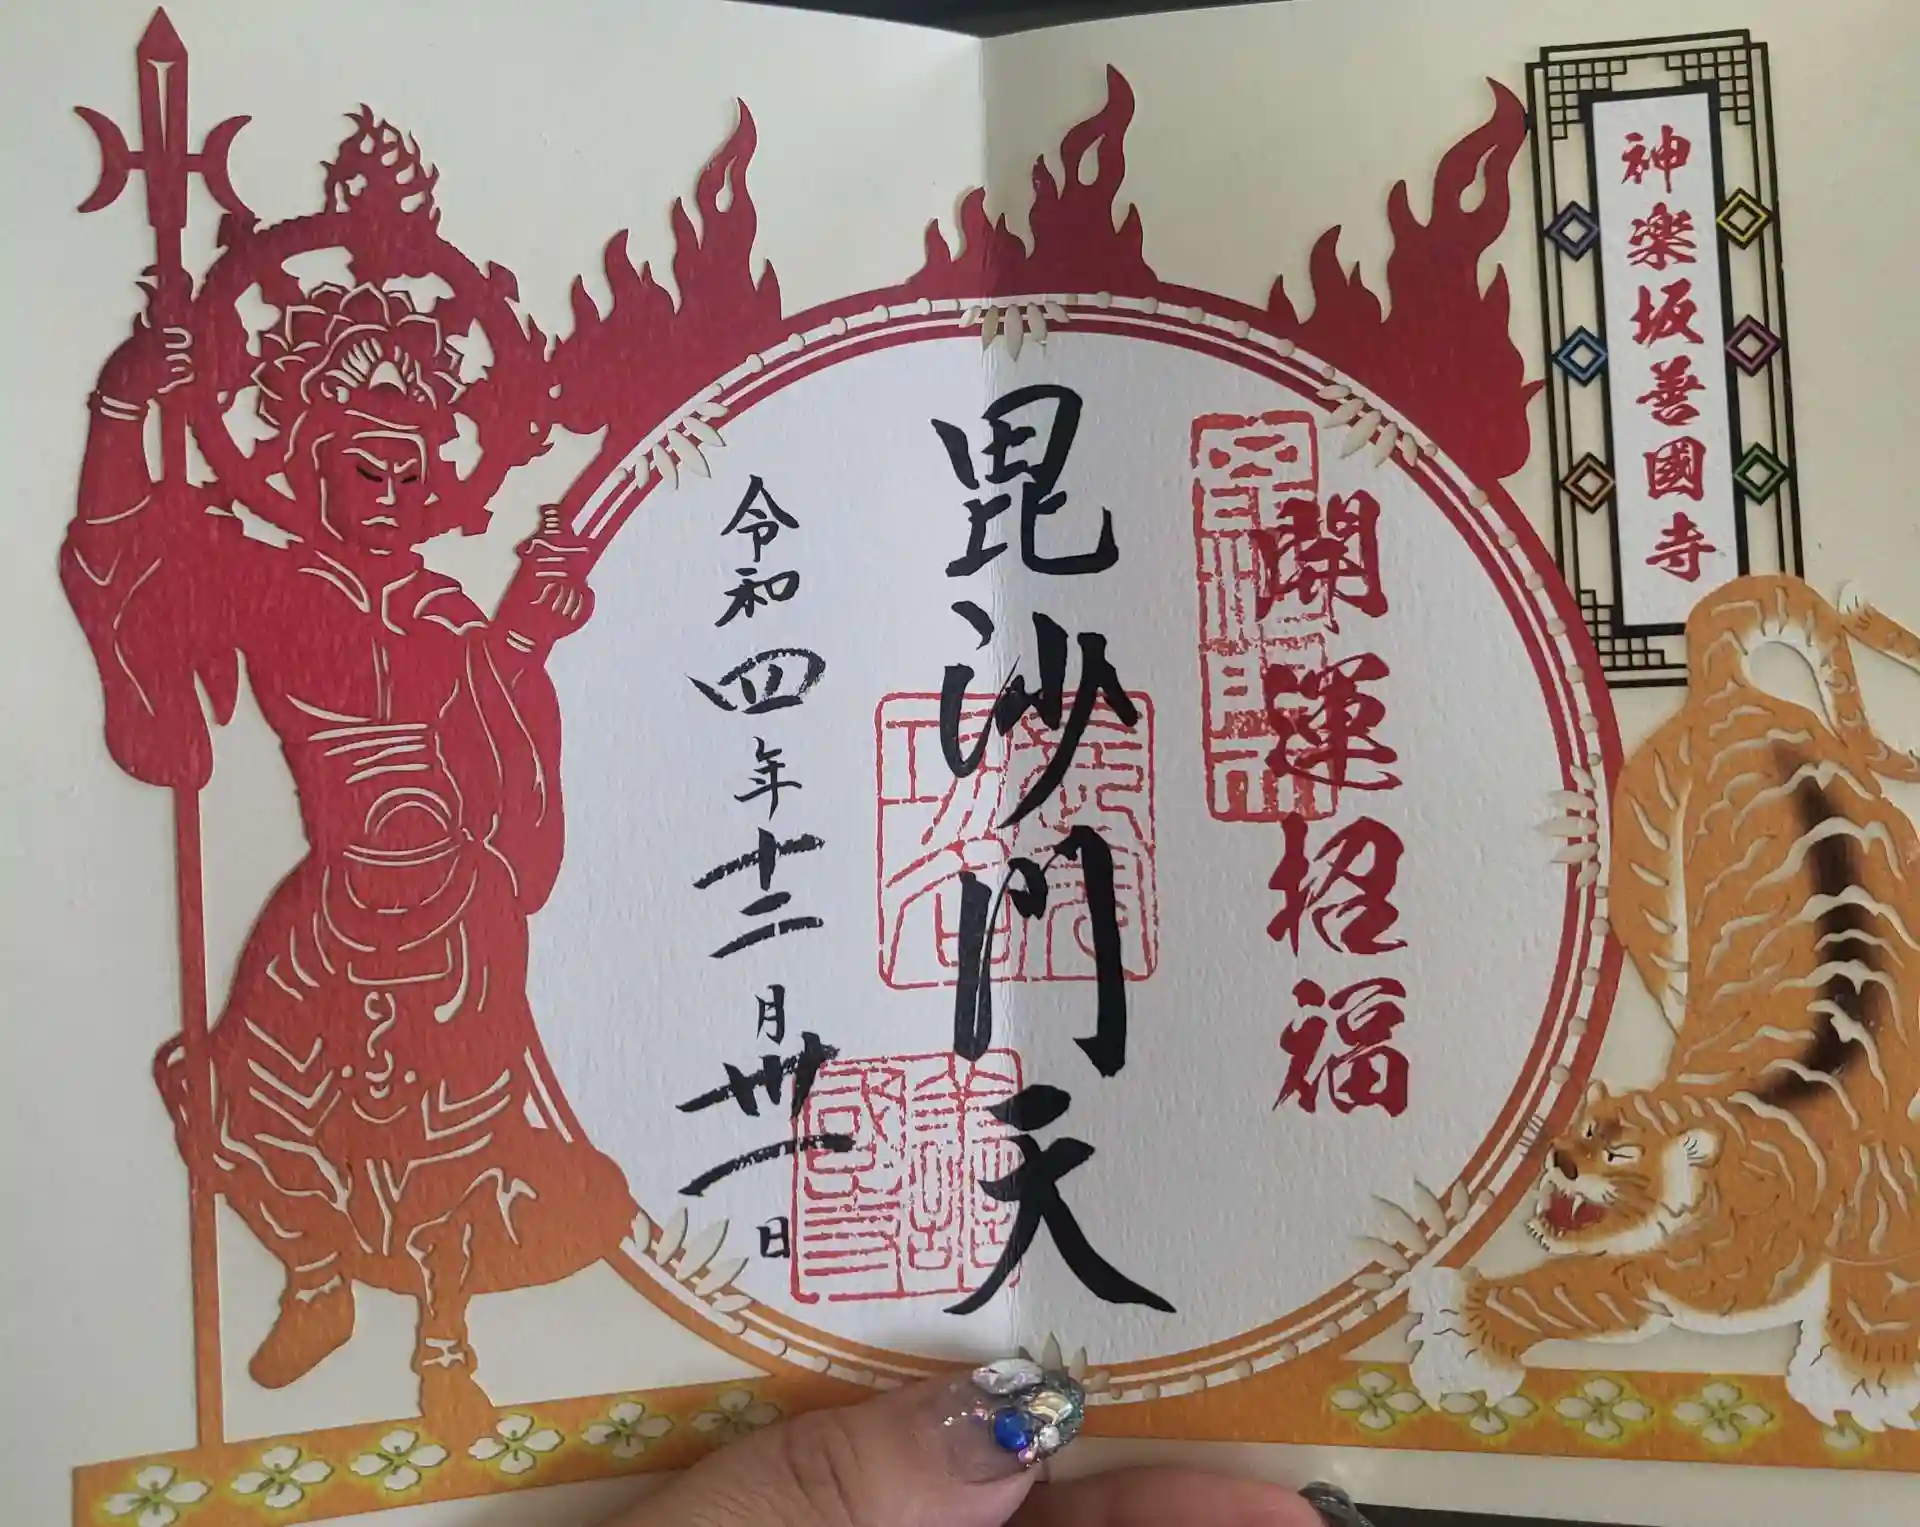 神楽坂善國寺
開運招福
毘沙門天
令和四年十二月卅一日
善國寺